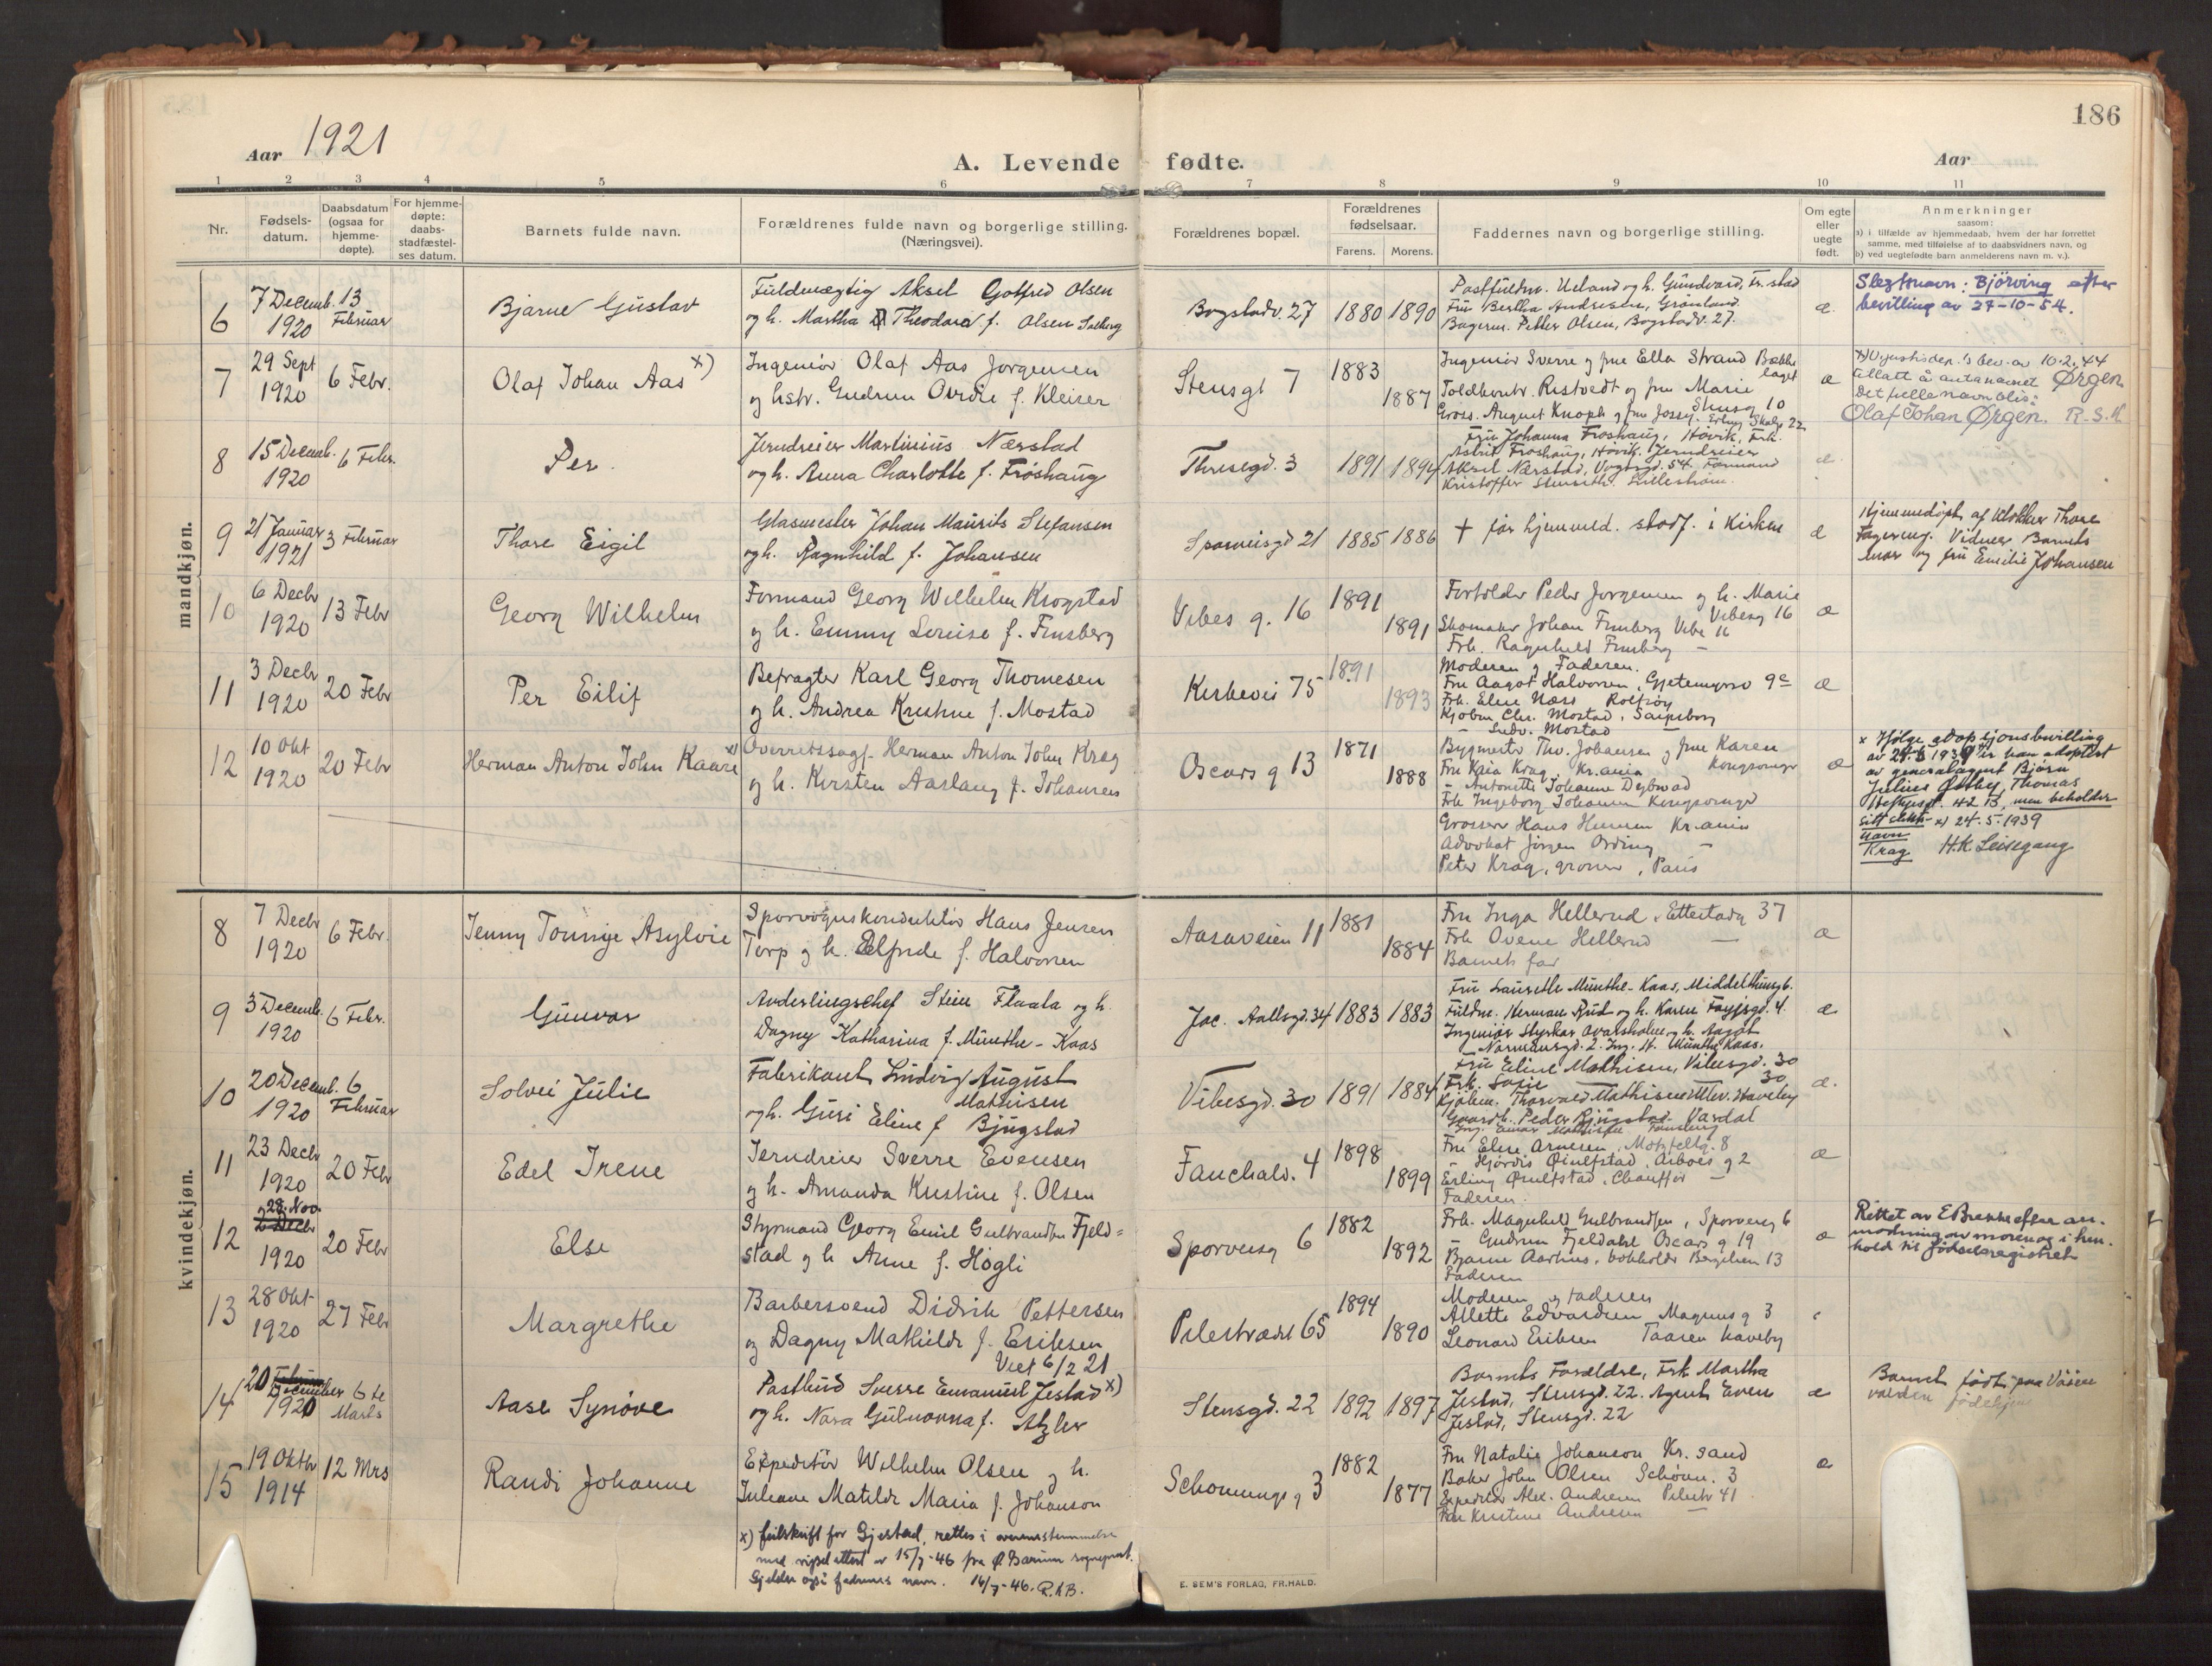 186
Aar 1921
A. Levende fødte.
Aar
1 2 3 4 5 6 7 8 9 10 11
Nr.
Fødsels-
datum.
Daabsdatum
(ogsaa for
hjemme-
døpte).
For hjemme-
døpte:
daabs-
stadfæstel-
ses datum.
Barnets fulde navn.
Forældrenes fulde navn og borgerlige stilling.
(Næringsvei).
Forældrenes bopæl.
Forældrenes
fødselsaar.
Farens. Morens.
Faddernes navn og borgerlige stilling.
Om egte
eller
uegte
født.
Anmerkninger
saasom:
a) i tilfælde av hjemmedaab, hvem der har forrettet
samme, med tilføielse af to daabsvidners navn, og
b) ved uegtefødte barn anmelderens navn m. v.).
mandkjøn.
6
7 Decemb.
1920
13
Februar
Bjarne Gustav
Fuldmægtig Aksel Gotfred Olsen
og h. Martha Theodora f. Olsen Solberg
Bogstadv. 27
1880 1890
Postfuldm. Ueland og h. Gundvard, Fr.stad
Fru Bertha Andresen, Grønland.
Bagerm. Petter Olsen, Bogstadv. 27.
æ
Slegtsnavn: Bjørving efter
bevilling av 27-10-54.
7
29 Sept
1920
6 Febr.
Olaf Johan Aas x)
Ingeniør Olaf Aas Jørgensen
og hstr. Gudrun Ovidie f. Kleiser
Stensgt 7
1883
1887
Ingeniør Sverre og frue Ella Strand Bække
laget
Toldkontr. Rustvedt og frue Marie
Stensg 10
Gross. August Knoph og frue Jossy. Erling Skalgs 22
æ
x) Ved Justisdep.'s bev. av 10-2-44
tillatt å anta navnet Ørgen
Det fulle navn blir:
Olaf Johan Ørgen. R.S.H
8
15 Decemb.
1920
6 Febr.
Per.
Jerndreier Martinius Nærstad
og h. Anna Charlotte f. Frøshaug
Thresegd. 3
1891 1894
Fru Johanna Froshaug, Høvik, Frk.
Astrid Froshaug, Høvik. Jerndreier
Aksel Nærstad, Vogtsgd. 54. Formand
Kristoffer Stenseth. Lillestrøm.
æ
9
21 Januar
1921
3 Februar
Thore Eigil
Glasmester Johan Maurits Stefansen
og h. Ragnhild f. Johansen
Sporveisgd 21
1885 1886
† før hjemmed. stadf. i Kirken
æ
Hjemmedøpt af Klokker Thore
Fagereng. Vidner Barnets
mor og fru Emilie Johansen
10
6 Decbr
1920
13 Febr
Georg Wilhelm
Formand Georg Wilhelm Krogstad
og h. Emmy Lovise f. Finsberg
Vibes g. 16
1891
1891
Forvolder Peder Jørgensen og h. Marie
Vibesg 16
Skomaker Johan Finsberg Vibe 16
Frk. Ragnhild Finsberg —
æ
11
3 Decbr
1920
20 Febr
Per Eilif
Befragter Karl Georg Thomesen
og h. Andrea Kristine f. Mostad
Kirkevei 75
1891
1893
Moderen og Faderen.
Fru Aagot Halvorsen, Gjetemyrsv 9c
Frk. Elise Næss Rolfsøy
Kjøbm Chr. Mostad, Sarpsborg
— Ludv. Mostad —
æ
12
10 Okt
1920
20 Febr
Herman Anton John Kaare x)
Overretssagf. Herman Anton John Krag
og h. Kirsten Aaslaug f. Johansen
Oscars g 13
1871
1888
Bygmester Thv. Johansen og frue Karen
Kongsvinger
Fru Kaia Krag, Kr.ania
— Antonette Johanne Dybwad
Frk Ingeborg Johansen Kongsvinger
Grosserer Hans Hansen Kr.ania
Advokat Jørgen Ording —
Peter Krag, grosser, Paris
æ
x Ifølge adopsjonsbevilling
av 24.5 1939 er han adoptert
av generalagent Bjørn
Julius Østby, Thomas
Heftyesgt. 42 B, men beholder
sitt slekts-
navn
Krag
x) 24.5.1939
H.K Leisegang
kvindekjøn.
8
7 Decbr
1920
6 Febr.
Jenny Tounnje Asylvie
Sporvognskonduktør Hans Jensen
Torp og h. Elfride f. Halvorsen
Aasaveien 11
1881
1884
Fru Inga Hellerud, Etterstadg 37
Frk Ovene Hellerud —
Barnets far
æ
9
3 Decemb.
1920
6 Febr.
Gunvor
Avdelingschef Stein Flaata og h.
Dagny Katharina f. Münthe-Kaas
Jac. Aallsgd. 34
1883 1883
Fru Laurette Münthe-Kaas, Middelthunsg 6.
Fuldm. Herman Rud og h. Karen Fayesgd. 4.
Ingeniør Styrkar Ovarsholm og h. Aagot
Normansgd. 2. Ing. H. Münthe Kaas.
æ
10
20 Decemb.
1920
6
Februar
Solvei Julie
Fabrikant Ludvig August
Mathisen
og h. Guri Eline f Bjugstad
Vibesgd. 30
1891 1884
Fru Eline Mathisen, Vibesgd. 30
Frk. Josie — 30
Kjøbm. Thorvald Mathisen Ullev. Haveby
Gaardb. Peder Bjugstad Vardal
æ.
11
23 Decbr
1920
20 Febr
Edel Irene
Jerndreier Sverre Evensen
og h. Amanda Kristine f. Olsen
Fauchalv. 4
1898
1899
Fru Elise Arnesen, Motzfeltg. 8
— Hjørdis Qiulfstad, Arboes g 2
Erling Qiulfstad, Chauffør —
Faderen.
æ
12
28 Nov.
6 Decbr
1920
20 Febr
Else
Styrmand Georg Emil Gulbrandsen Fjeld=
stad og h Anne f. Høgli
Sporveisg 6
1882
1892
Frk. Magnhild Gulbrandsen, Sporveisg 6
— Gudrun Fjeldahl Oscars g 19
Bjarne Aarhus, bokholder Bergslien 13
Faderen
æ
Rettet av E Brekke efter an-
modning av moren og i hen-
hold til fødselsregistret
13
28 Okt
1920
27 Febr
Margrethe
Barbersvend Didrik Pettersen
og Dagny Mathilde f. Eriksen
Viet 6/2 21
Pilestrædet 65
1894
1890
Moderen og Faderen
Allette Edvardsen Magnus g 3
Leonard Eriksen Taasen haveby
14
20 Februar
December
1920
6te
Marts
Aase Synøve
Postbud Sverre Emanuel Jestad x)
og h. Nora Gulnanna f. Atzler
Stensgd. 22
1892 1897
Barnets Forældre, Frk Martha
Jestad, Stensgd. 22. Agent Even
Jestad, Stensgd. 22
æ
Barnet født paa Vaaler
15
19 Oktbr
1914
12 Mrs
Randi Johanne
Expeditør Wilhelm Olsen og h.
Juliane Matilde Maria f. Johanson
Schønnings g 3
1882
1877
Fru Natalie Johanson Kr. sand
Baker John Olsen Schønn. 3
Expeditør Alex. Andresen Pilestr 41
Fru Kristine Andresen —
æ
x) feilskrift for Gjestad, rettes i overensstemmelse
med vigselattest av 15/7-46 fra Ø. Bærum sogneprest.
Gjelder også fadrenes navn. 16/7-46. R.A.B.
E. SEM'S FORLAG, FR.HALD.